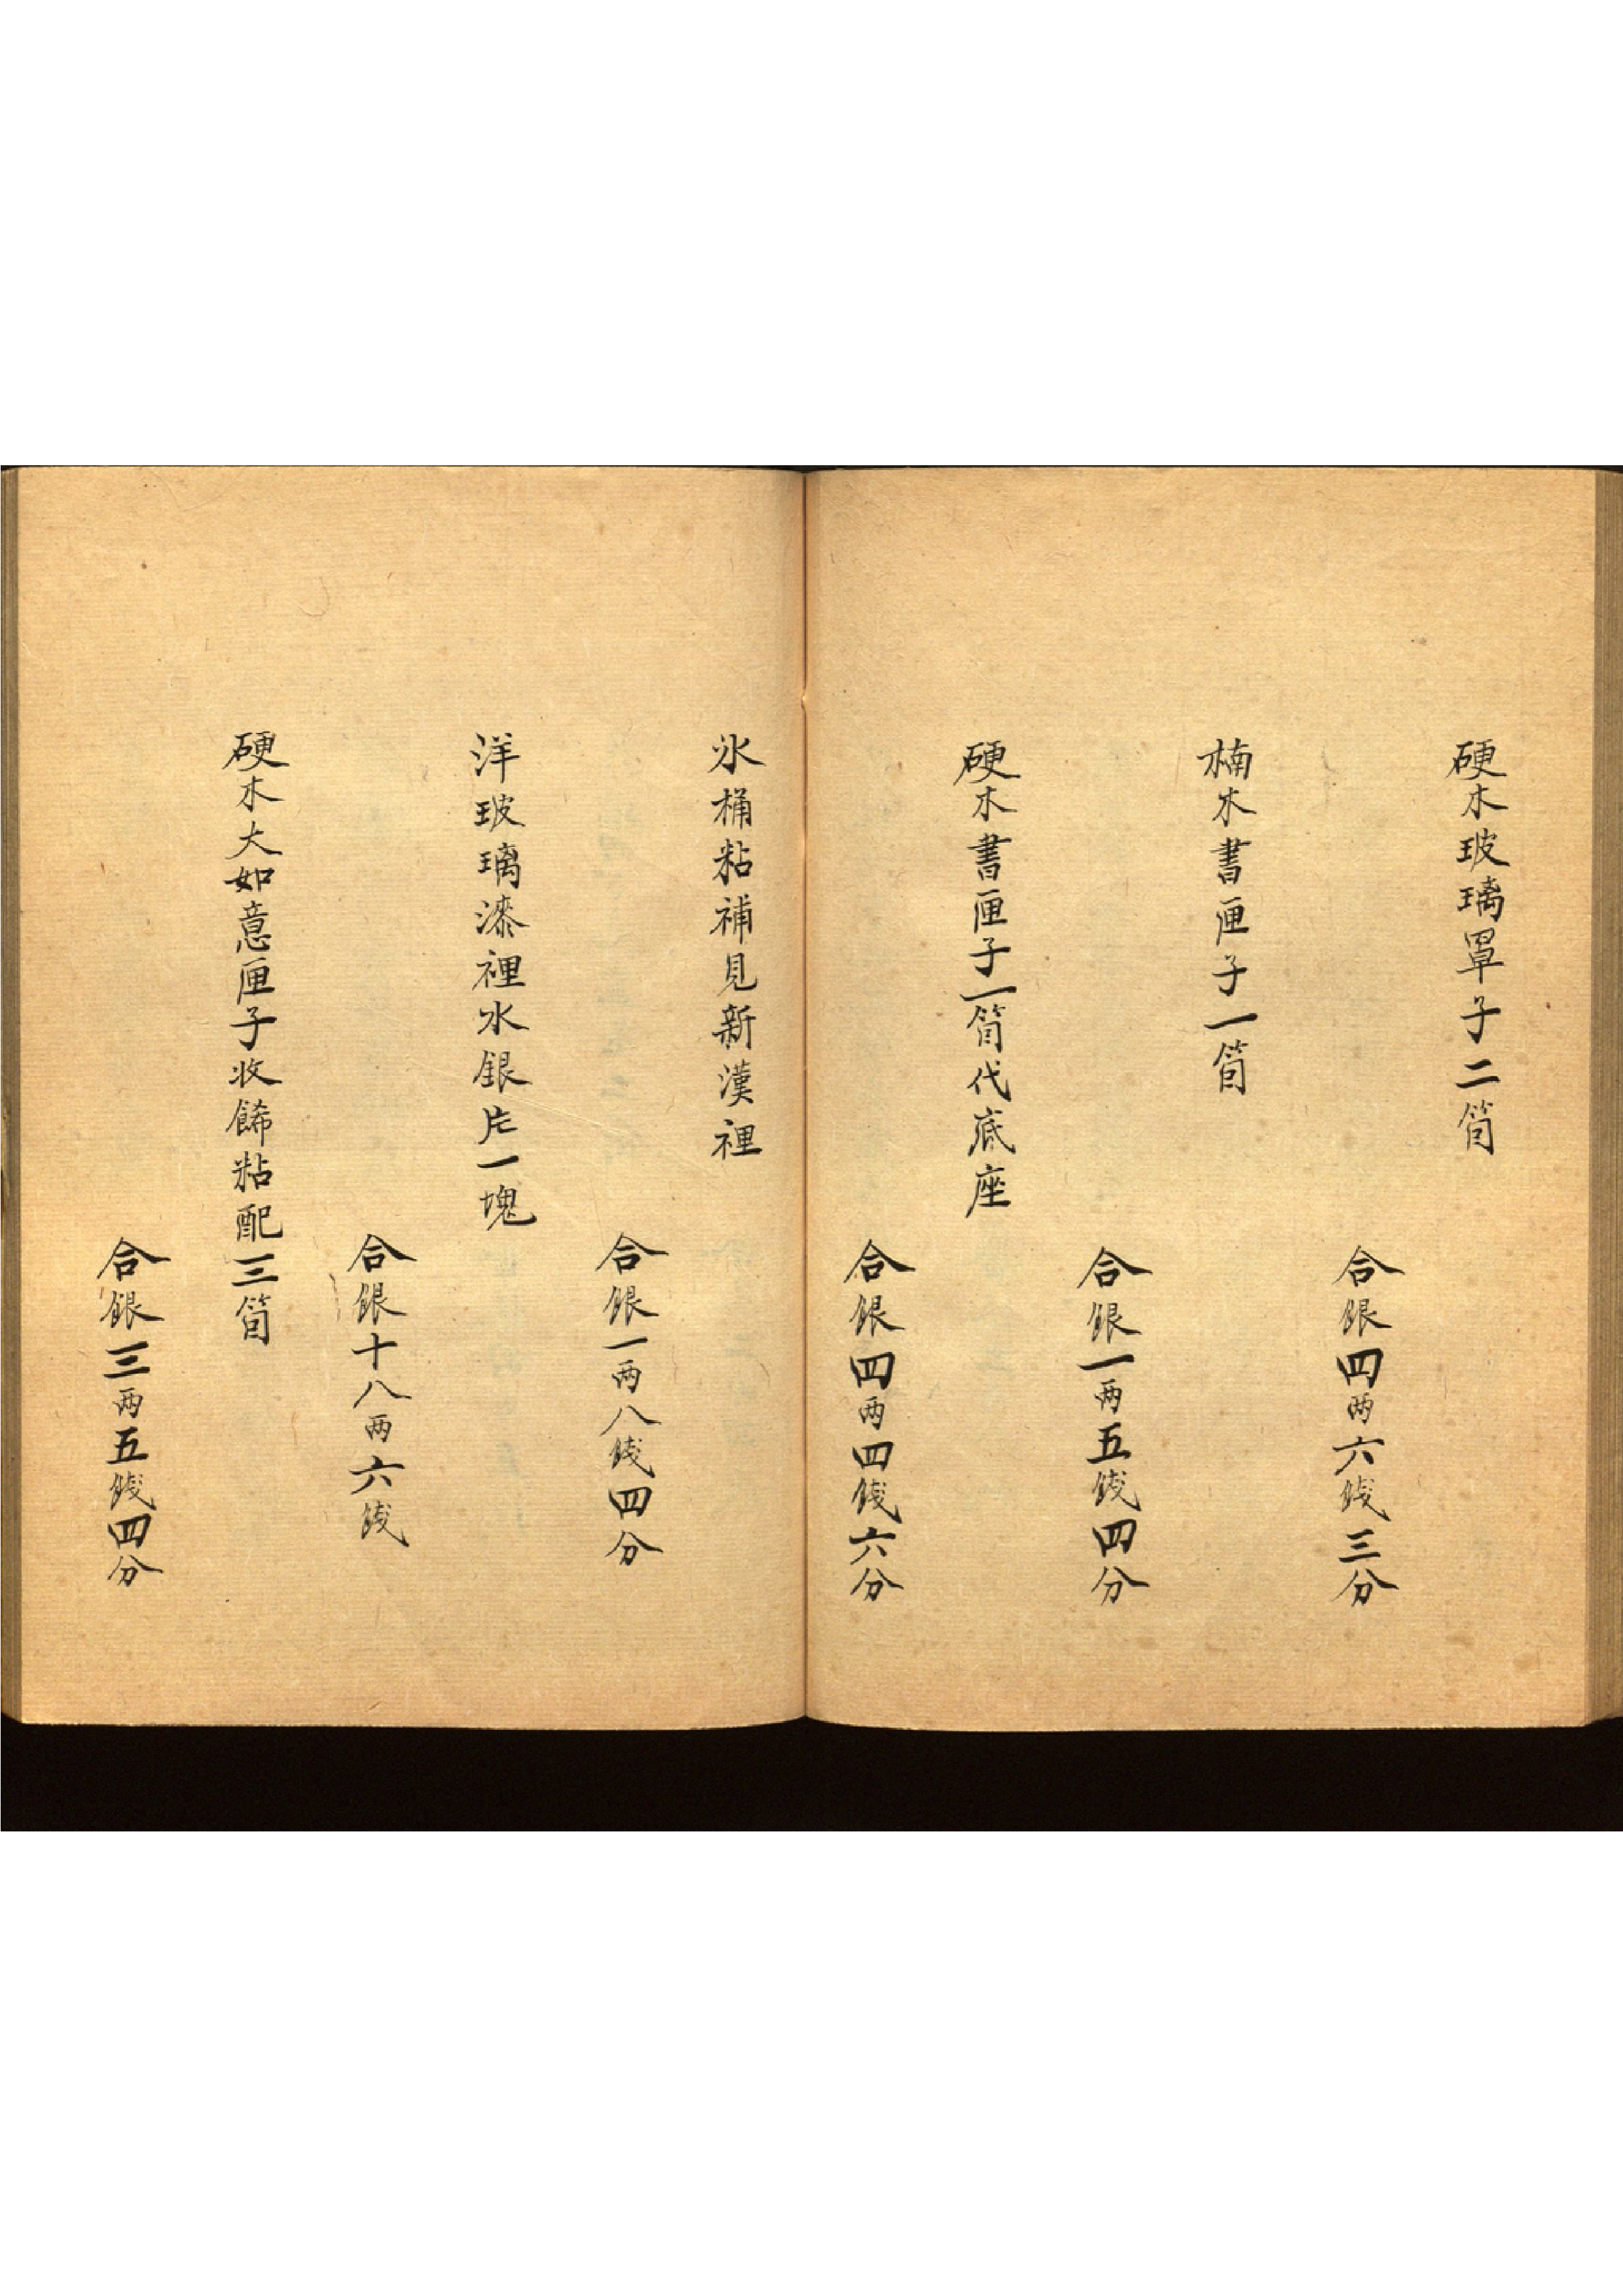 硬木玻璃罩子二箇
合銀四两六錢三分
楠木書匣子一箇
合銀一两五錢四分
硬木書匣子一箇代底座
合銀四两四錢六分
氷桶粘補見新漢裡
合銀一两八錢四分
洋玻璃漆裡水銀片一塊
合銀十八两六錢
硬木大如意匣子收餙粘配三箇
合銀三两五錢四分